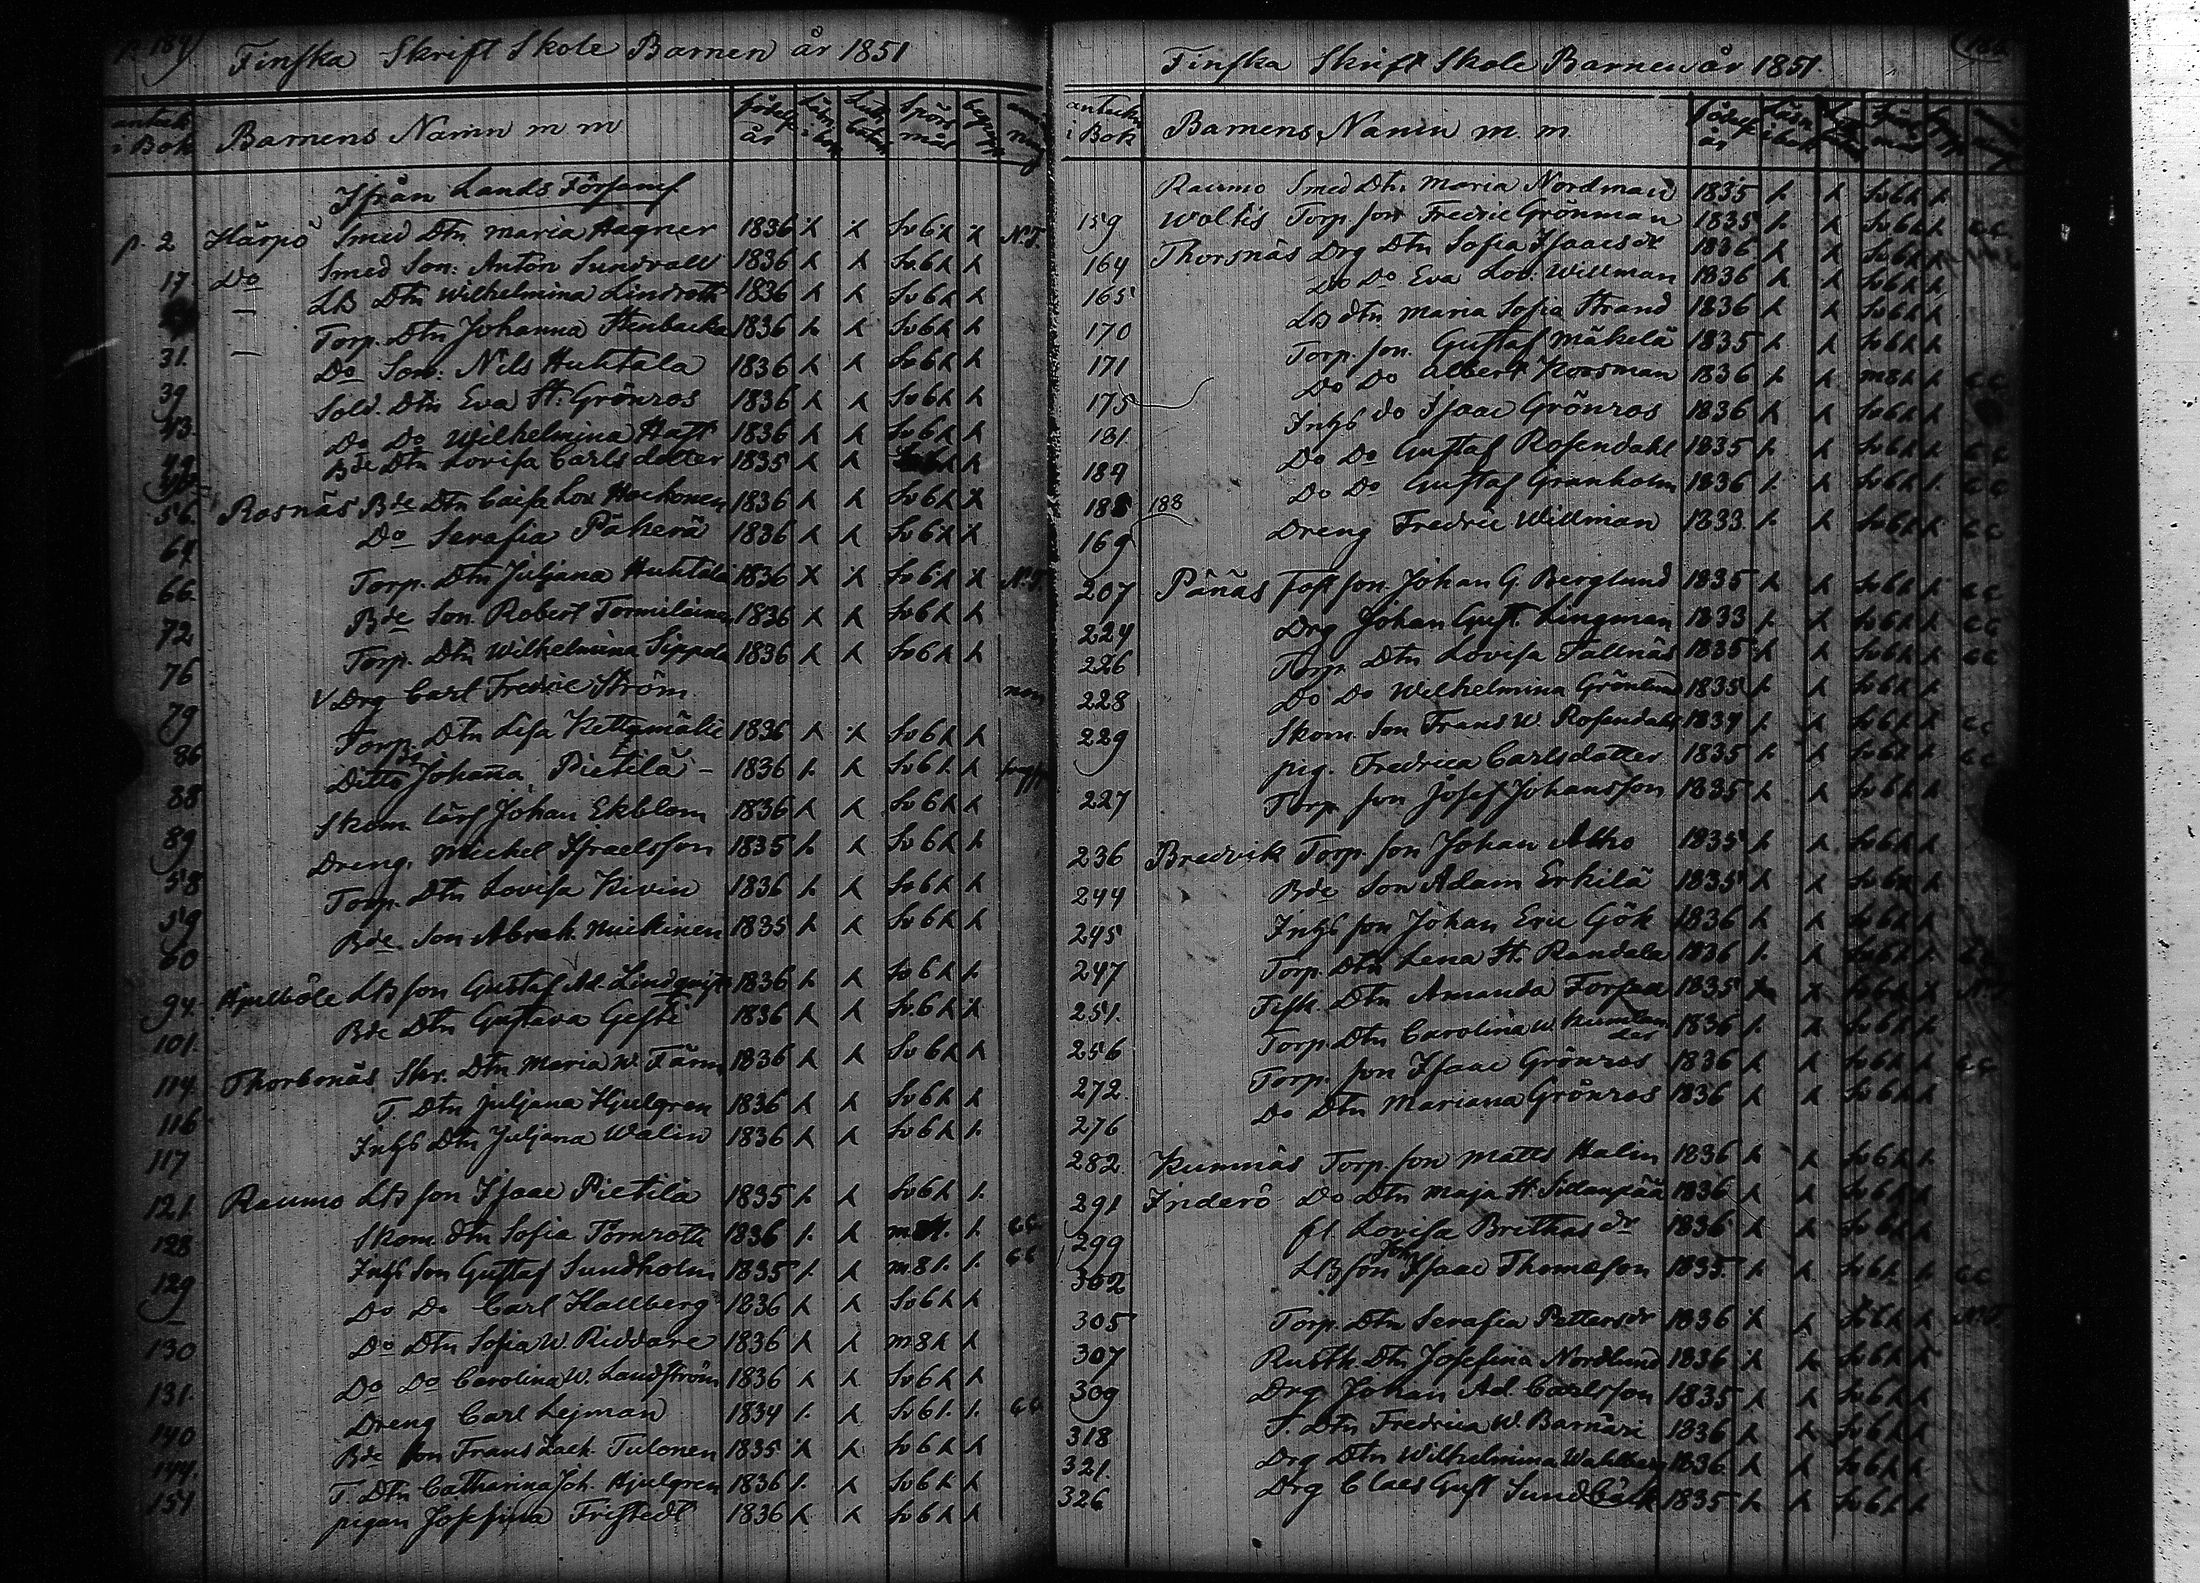 Finska Skrift Skole Barnen år 1851
anteckn i Bok Barnens Namn m m födelse år
Ifrån Lands Församl
p. 2 Härpö Smed Dtn Maria Hagner 1836 x x Sv 6 x x N.T.
17 Do Smed Son: Anton Sundvall 1836 x x Sv 6 x x
— LB Dtn Wilhelmina Lindroth 1836 x x Sv 6 x x
31. — Torp. Dtn Johanna Stenbacka 1836 x x Sv 6 x x
39 Do Son: Nils Huhtala 1836 x x Sv 6 x x
43. Sold. Dtn Eva H. Grönroos 1836 x x Sv 6 x x
49 Do Do Wilhelmina Haft 1836 x x Sv 6 x x
Bde Dtn Lovisa Carlsdotter 1835 x x x
56. Rosnäs Bde Dtn Caisa Lov. Hockonen 1836 x x Sv 6 x x
64 Do Serafia Päkerä 1836 x x Sv 6 x x
66. Torp. Dtn Juljana Huhtala 1836 x x Sv 6 x x N.T.
72 Bde Son Robert Tormiläinen 1836 x x Sv 6 x x
76 Torp. Dtn Wilhelmina Sippola 1836 x x Sv 6 x x
79 V Drg Carl Fredric Ström
86 Torp. Dtn Lisa Kettumäki 1836 x x Sv 6 x x
88 Ditto Johanna Pietilä – 1836 x x Sv 6 x x
89 Skom. lärl Johan Ekblom 1836 x x Sv 6 x x
58 Dreng. Michel Israelsson 1835 x x Sv 6 x x
59 Torp. Dtn Lovisa Kivin 1836 x x Sv 6 x x
60 Bde. Son Abrah. Mickinen 1835 x x Sv 6 x x
94. Hjulböle LB son Gustaf Ad. Lindqvist 1836 x x Sv 6 x x
101. Bde Dtn Gustava Geste 1836 x x Sv 6 x x
114. Thorbnäs Skr. Dtn Maria W. Färm 1836 x x Sv 6 x x
116 T. Dtn Juljana Hjulgren 1836 x x Sv 6 x x
117 Inhs Dtn Juljana Walin 1836 x x Sv 6 x x
121. Raumo LB son Isaac Pietilä 1835 x x Sv 6 x x
128 Skom. Dtn Sofia Törnroth 1836 x x
129 Inhs Son Gustaf Sundholm 1835 x x m 8 x x
Do Do Carl Hallberg 1836 x x Sv 6 x x
130 Do Dtn Sofia W. Riddare 1836 x x m 8 x x
131. Do Do Carolina W. Landström 1836 x x Sv 6 x x
140 Dreng Carl Lejman 1834 x x Sv 6 x x
144. Bde son Frans Zach. Tulonen 1835 x x Sv 6 x x
151 T. Dtn Catharina Joh. Hjulgren 1836 x x Sv 6 x x
pigan Josefina Fristedt 1836 x x Sv 6 x x
Finska Skrift Skole Barnen år 1851.
anteckn i Bok Barnens Namn m. m. födelse år
Raumo Smed Dtn Maria Nordman 1835 x x Sv 6 x x
159 Woltis Torp. son Fredric Grönman 1835 x Sv 6 x x
164 Thorsnäs Drg Dtn Sofia Isaacsdr 1836 x x Sv 6 x x
165 Do Do Eva Lov. Willman 1836 x x Sv 6 x x
170 LB dtn Maria Sofia Strand 1836 x x Sv 6 x x
171 Torp. son. Gustaf Mäkelä 1835 x x Sv 6 x x
175 Do Do Albert Korsman 1836 x x m 8 x x
181 Inhs do Isaac Grönroos 1836 x x Sv 6 x x
189 Do Do Gustaf Rosendahl 1835 x x Sv 6 x x
188 188 Do Do Gustaf Granholm 1836 x x Sv 6 x x
169 Dreng Fredric Willman 1833 x x Sv 6 x x
207 Pånäs son Johan G. Berglund 1835 x x Sv 6 x x
224 Drg Johan Gust. Lingman 1833 x x Sv 6 x x
226 Torp. Dtn Lovisa Tallnäs 1835 x x Sv 6 x x
228 Do Do Wilhelmina Grönlund 1835 x x Sv 6 x x
229 Skom. Son Frans W. Rosendahl 1834 x x Sv 6 x x
pig. Fredrica Carlsdotter 1835 x x Sv 6 x x
227 Torp. son Josef Johansson 1835 x x Sv 6 x x
236 Bredvik Torp. son Johan Alho 1835 x x Sv 6 x x
244 Bde Son Adam Erkilä 1835 x x Sv 6 x x
245 Inhs son Johan Eric Gök 1836 x x Sv 6 x x
247 Torp. Dtn Lena H. Randala 1836 x x Sv 6 x x
251. Fisk. Dtn Amanda Forssa 1835 x x Sv 6 x x N.T.
256 Torp Dtn Carolina W. Kumlander 1836 x x Sv 6 x x
272. Torp. son Isaac Grönroos 1836 x x Sv 6 x x
276 Do Dtn Mariana Grönroos 1836 x x Sv 6 x x
282. Kumnäs Torp. son Matts Halin 1836 x x Sv 6 x x
291 Inderö Do Dtn Maja H. Sillanpää 1836 x x Sv 6 x x
299 fl Lovisa Brithasdr 1836 x x Sv 6 x x
302 LB son Isaac Thomasson 1835 x x Sv 6 x x
305 Torp. Dtn Serafia Pettersdr 1836 x x Sv 6 x x N.T.
307 Rusth. Dtn Josefina Nordlund 1836 x x Sv 6 x x
309 Drg Johan Ad. Carlsson 1835 x x Sv 6 x x
318 T. Dtn Fredrica W. Barnäri 1836 x x Sv 6 x x
321. Drg Dtn Wilhelmina Wahlberg 1836 x x Sv 6 x x
326 Drg Claes Gust Sundbäck 1835 x x Sv 6 x x